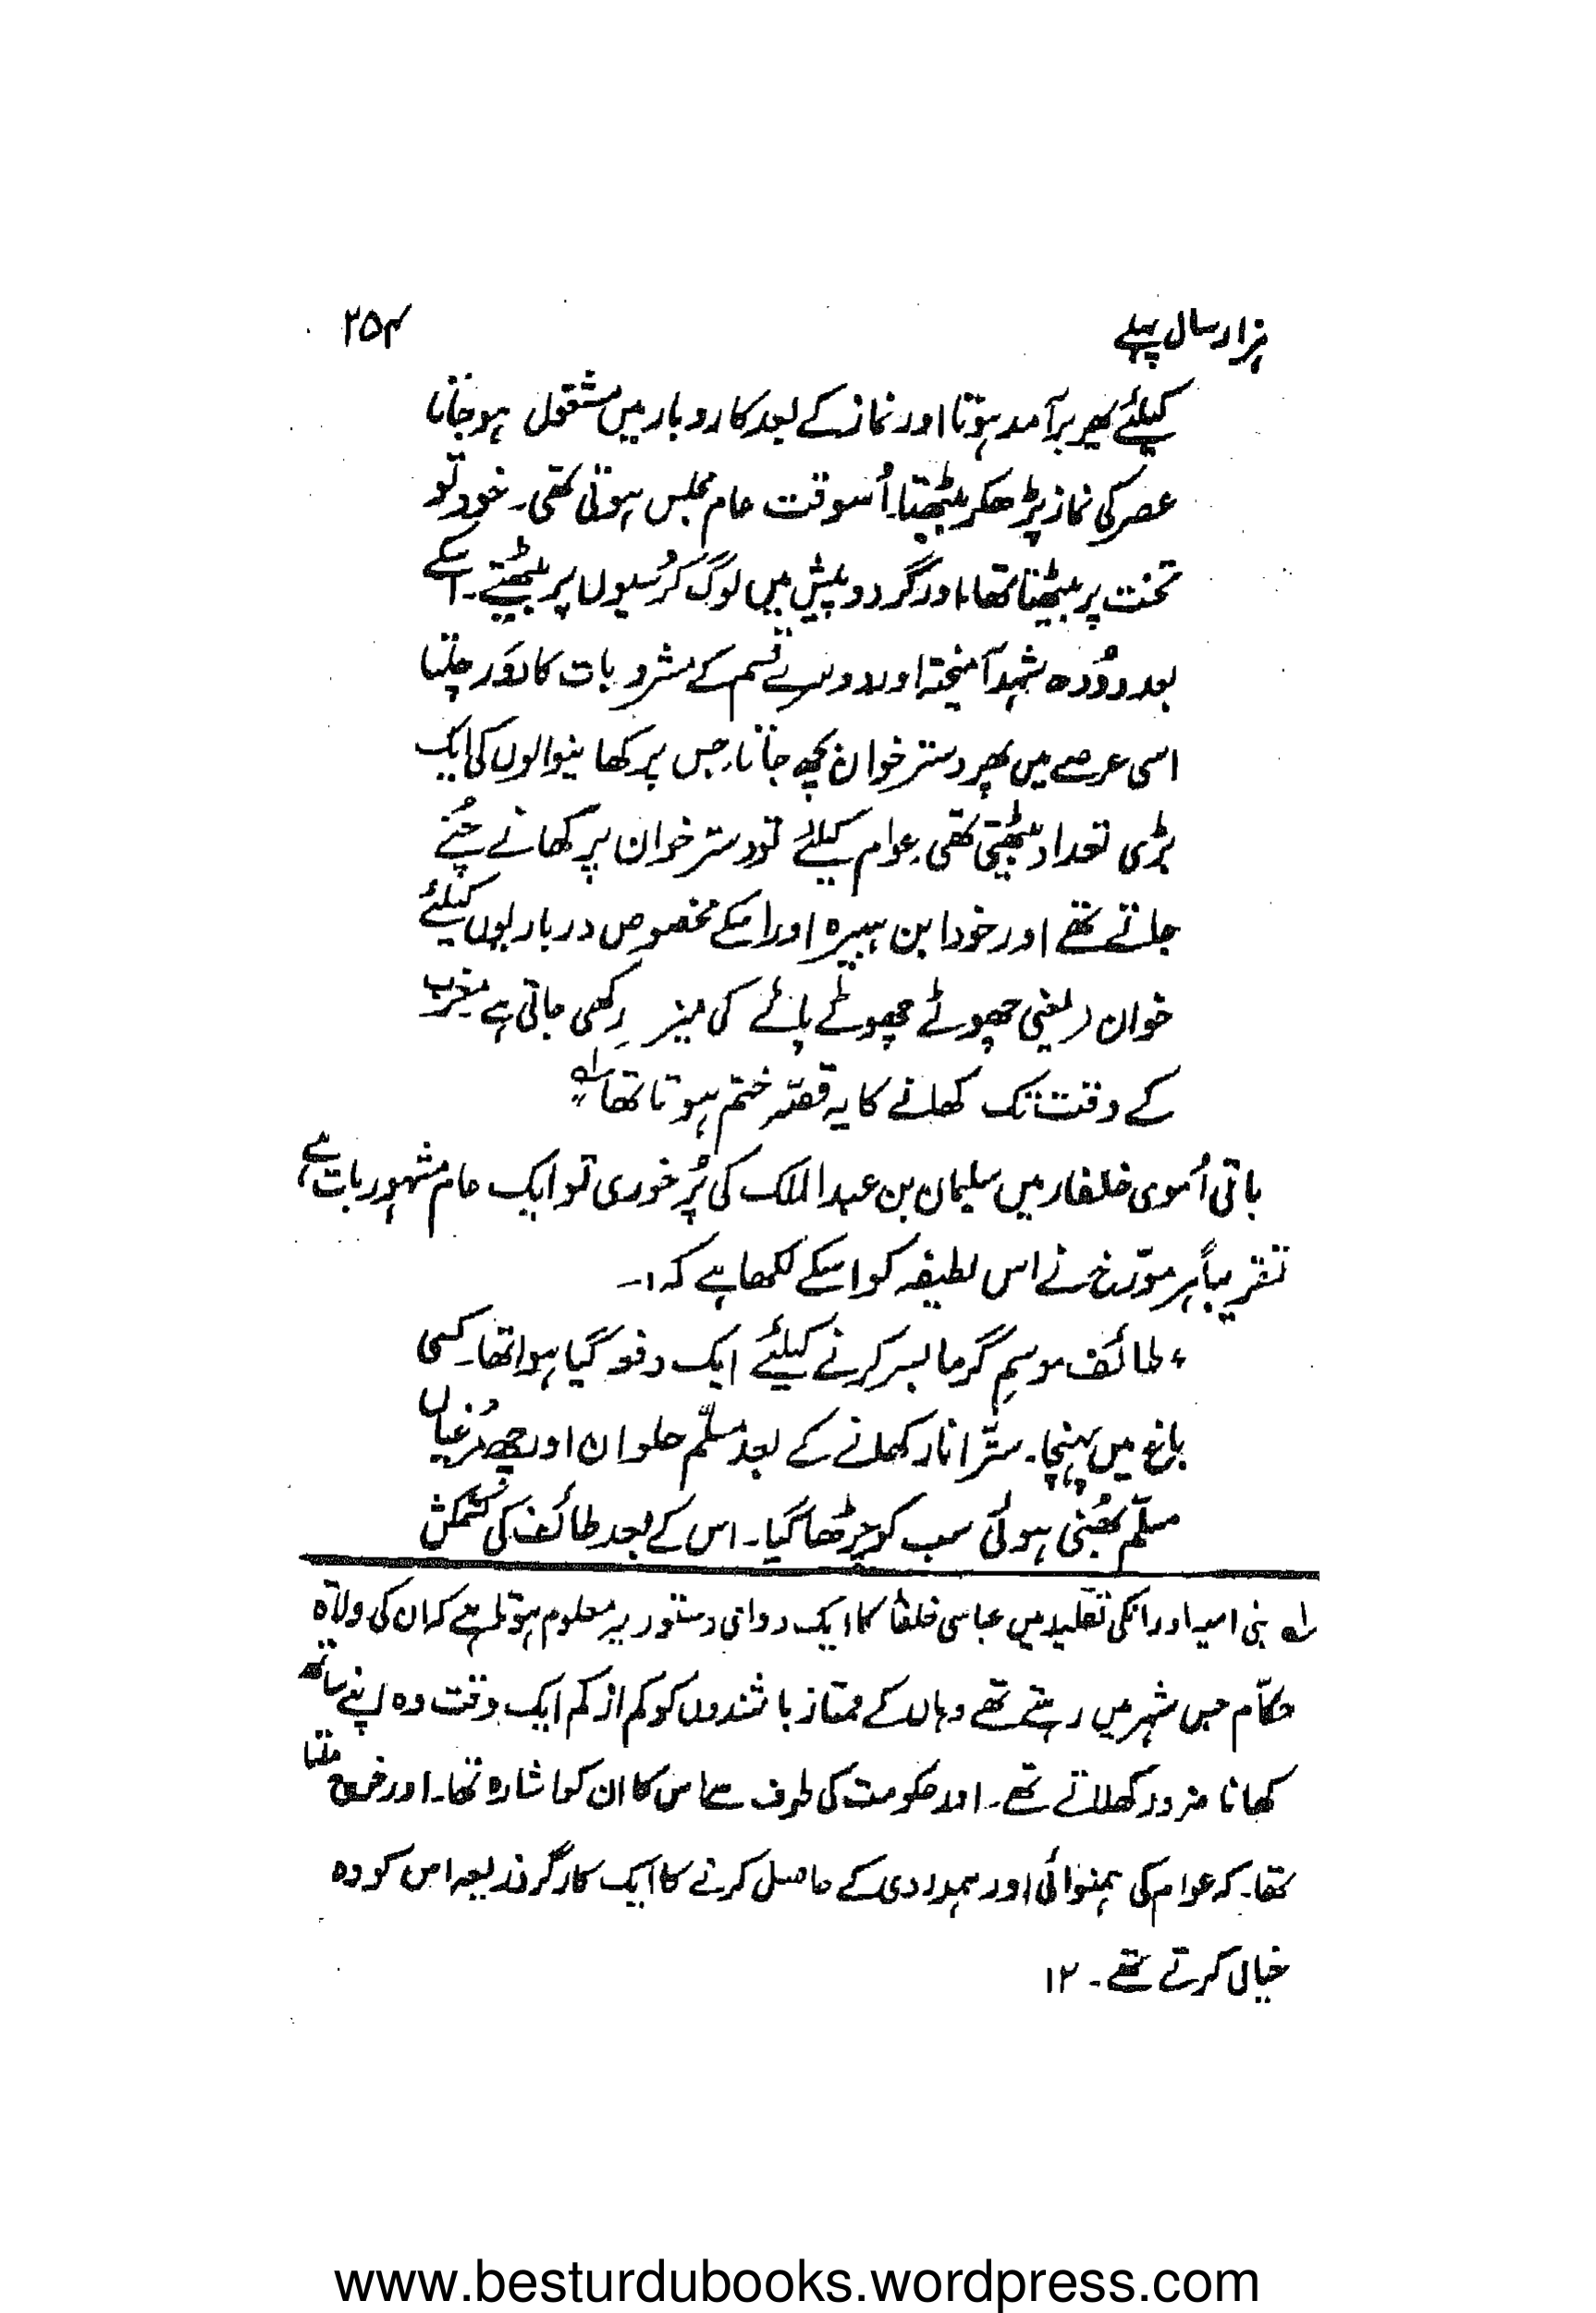 ہزار سال پہلے ۲۵۴
کیلئے پھر برآمد ہوتا اور نماز کے بعد کاروبار میں مشغول ہو جاتا
عصر کی نماز پڑھکر بیٹھتا۔ اُسوقت عام مجلس ہوتی تھی۔ خود تو
تخت پر بیٹھتا تھا، اور گرد و پیش میں لوگ کُرسیوں پر بیٹھتے۔ اسکے
بعد دُودھ شہد آمیختہ اور دوسرے قسم کے مشروبات کا دَور چلتا
اسی عرصے میں پھر دسترخوان بچھ جاتا، جس پر کھانیوالوں کی ایک
بڑی تعداد بیٹھتی تھی، عوام کیلئے تو دسترخوان پر کھانے چُنے
جاتے تھے اور خود ابن ہبیرہ اور اسکے مخصوص درباریوں کیلئے
خوان (یعنی چھوٹے چھوٹے پائے کی میز رکھی جاتی ہے مغرب
کے وقت تک کھانے کا یہ قصّہ ختم ہوتا تھا لہ"
باقی اُموی خلفاء میں سلیمان بن عبدالملک کی پُرخوری تو ایک عام مشہور بات ہے
تقریباً ہر مورّخ نے اس لطیفہ کو اسکے لکھا ہے کہ:۔
"طائف موسمِ گرما بسر کرنے کیلئے ایک دفعہ گیا ہوا تھا۔ کسی
باغ میں پہنچا۔ ستّر انار کھانے کے بعد مسلّم حلوان اور چھ مُرغیاں
مسلّم بھُنی ہوئی سب کو چڑھا گیا۔ اس کے بعد طائف کی کشمکش
لہ بنی امیہ اور انکی تقلید میں عباسی خلفا کا ایک رواجی دستور یہ معلوم ہوتا ہے کہ ان کی ولاۃ
حکّام جس شہر میں رہتے تھے وہاں کے ممتاز باشندوں کو کم از کم ایک وقت وہ اپنے ساتھ
کھانا ضرور کھلاتے تھے۔ اور حکومت کی طرف سے اس کا ان کو اشارہ تھا۔ اور خرچ ملتا
تھا۔ کہ عوام کی ہمنوائی اور ہمدردی کے حاصل کرنے کا ایک کارگر ذریعہ اس کو وہ
خیال کرتے تھے۔ ۱۲
www.besturdubooks.wordpress.com